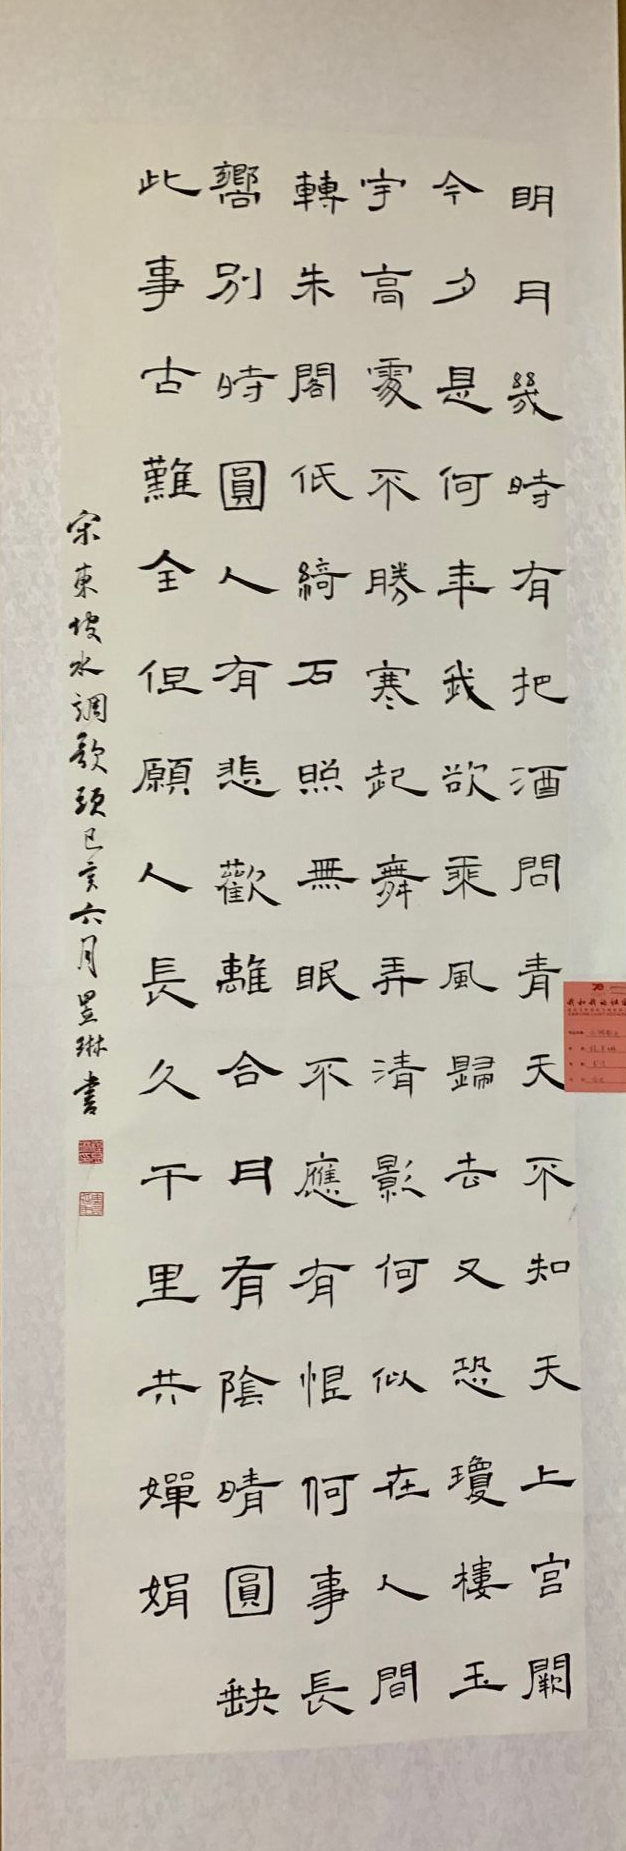 明月幾時有把酒問青天不知天上宫闕
今夕是何年我欲乘風歸去又恐瓊樓玉
宇高處不勝寒起舞弄清影何似在人間
轉朱閣低綺石照無眠不應有恨何事長
嚮別時圓人有悲歡離合月有陰晴圓缺
此事古難全但願人長久千里共嬋娟
宋東坡水調歌頭己亥六月昱琳書
70
我和我的祖国